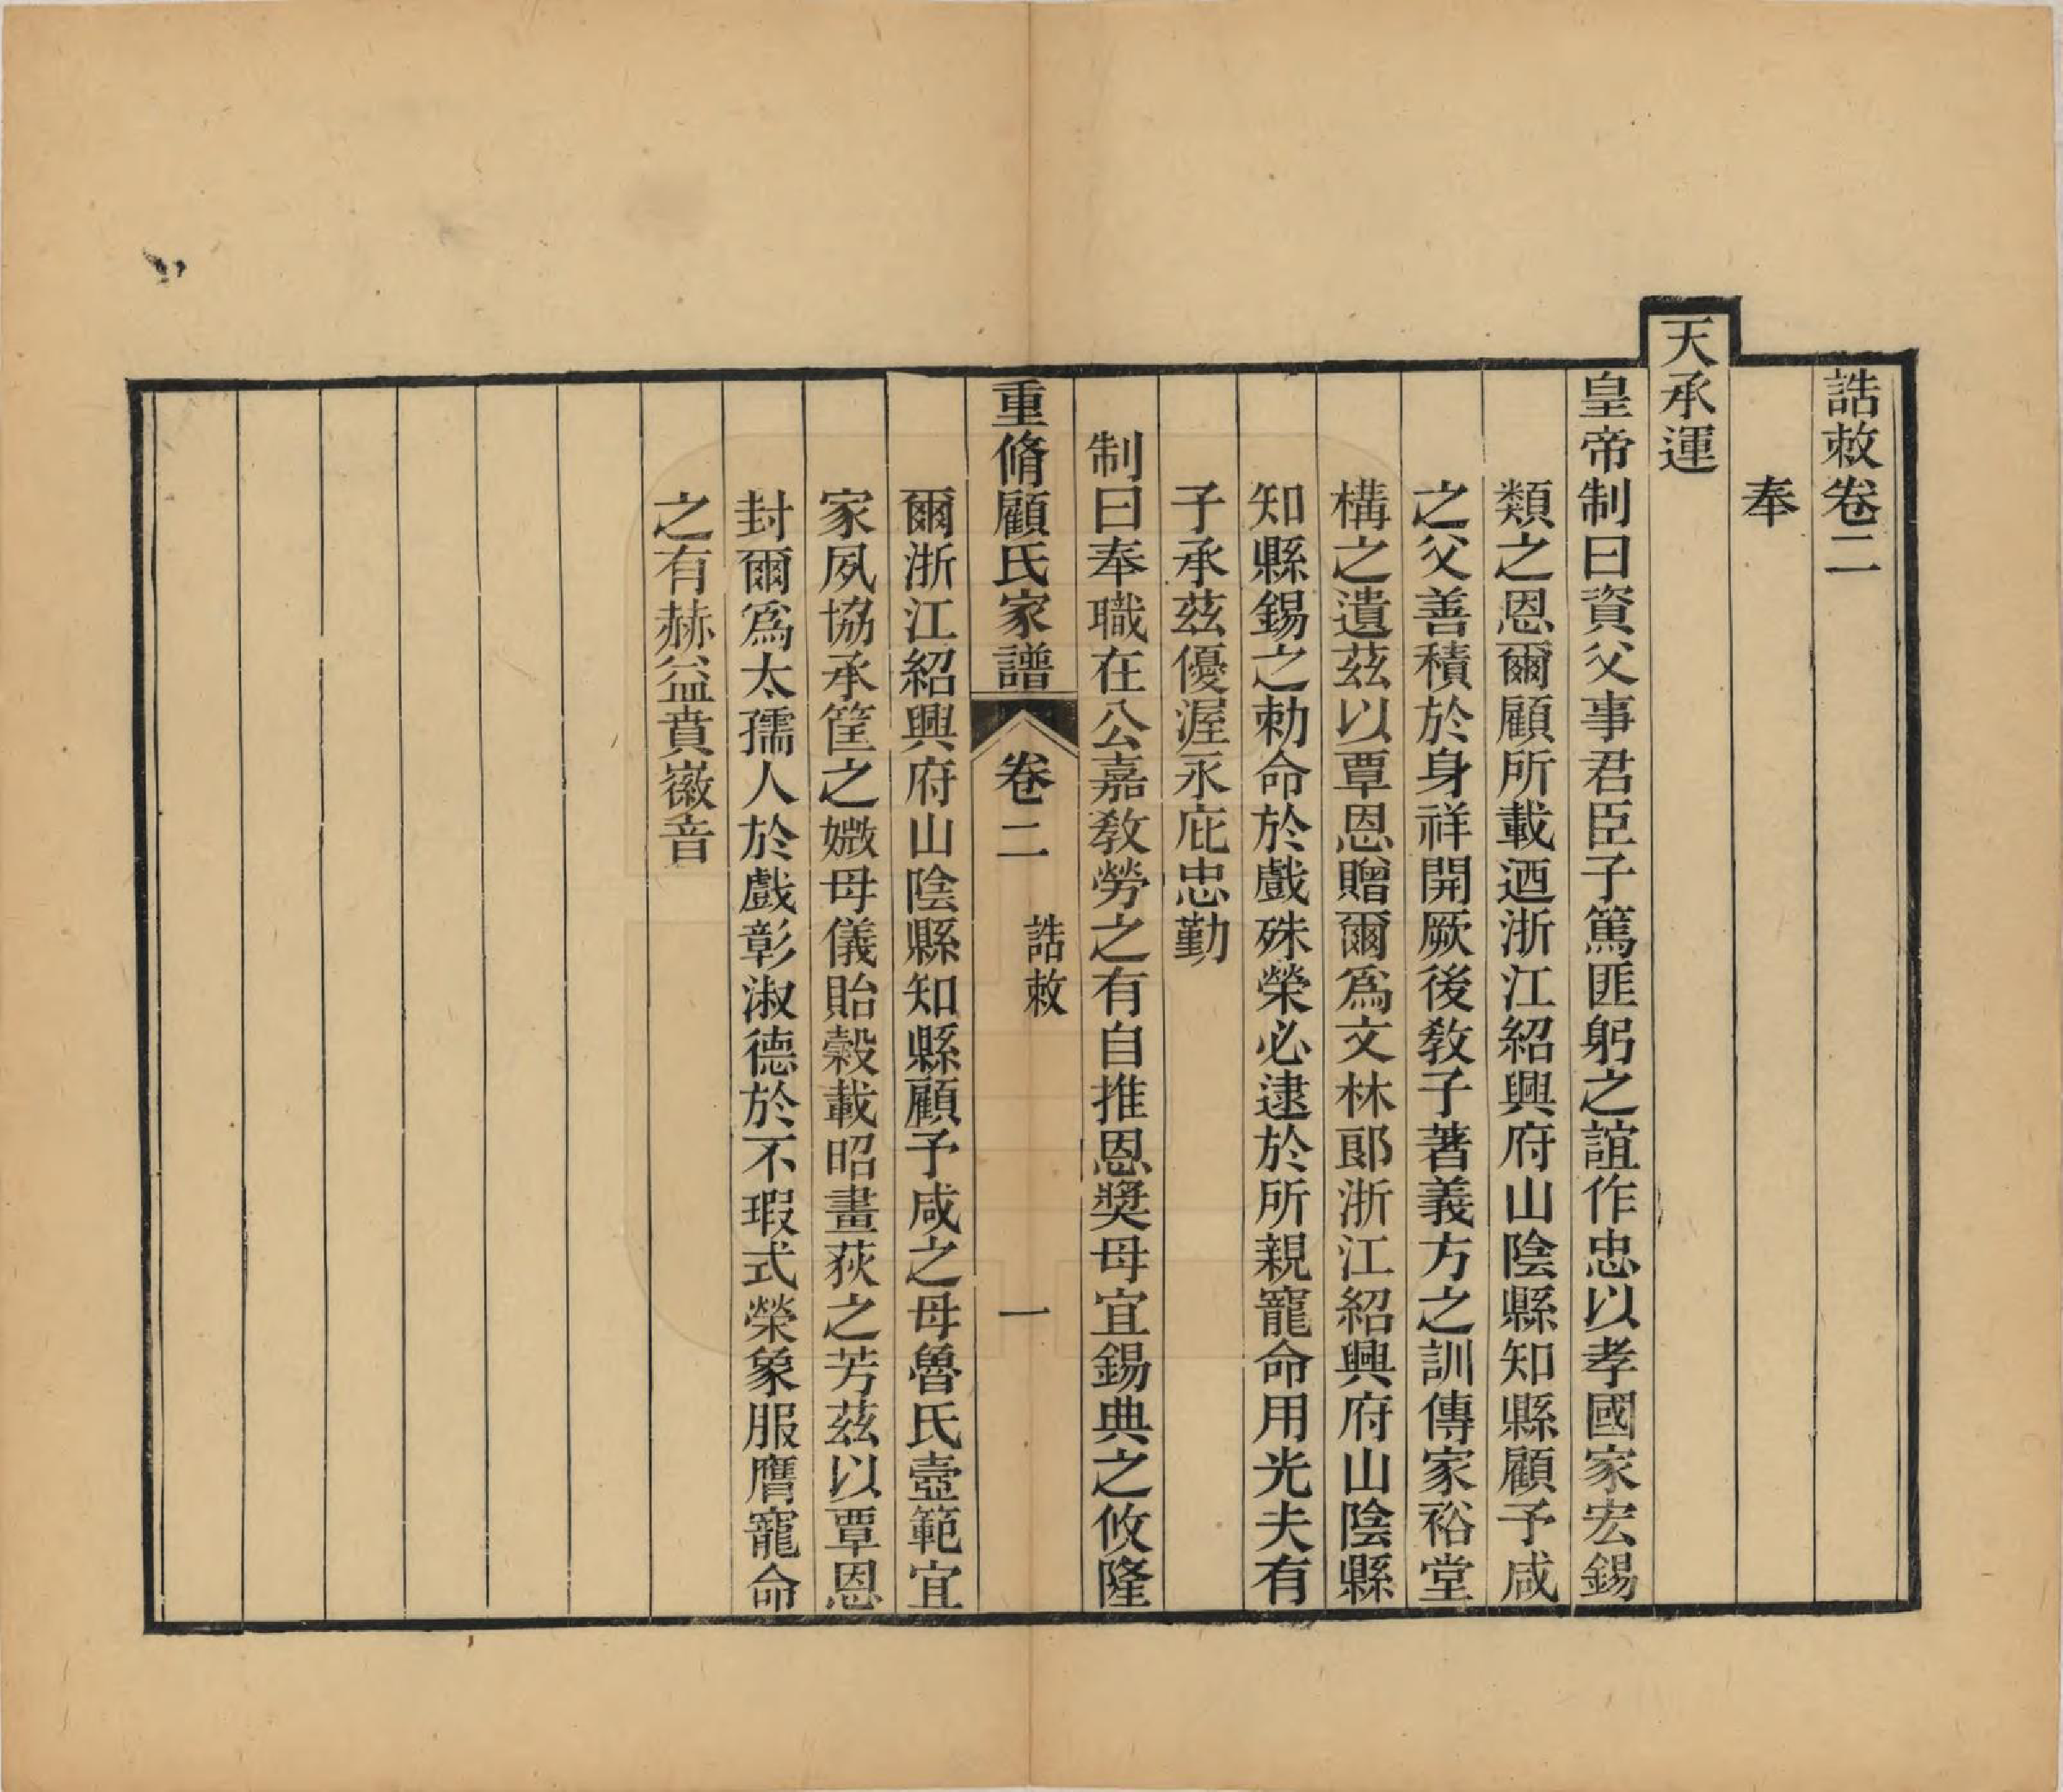 誥敕卷二
奉
天承運
皇帝制曰資父事君臣子篤匪躬之誼作忠以孝國家宏錫
類之恩爾顧所載迺浙江紹興府山陰縣知縣顧予咸
之父善積於身祥開厥後敎子著義方之訓傳家裕堂
構之遺茲以覃恩贈爾爲文林郞浙江紹興府山陰縣
知縣錫之勅命於戲殊榮必逮於所親寵命用光夫有
子承茲優渥永庇忠勤
制曰奉職在公嘉敎勞之有自推恩奬母宜錫典之攸隆
重脩顧氏家譜 卷二 誥敕 一
爾浙江紹興府山陰縣知縣顧予咸之母魯氏壼範宜
家夙協承筐之媺母儀貽穀載昭畫荻之芳茲以覃恩
封爾爲太孺人於戲彰淑德於不瑕式榮象服膺寵命
之有赫益賁徽音